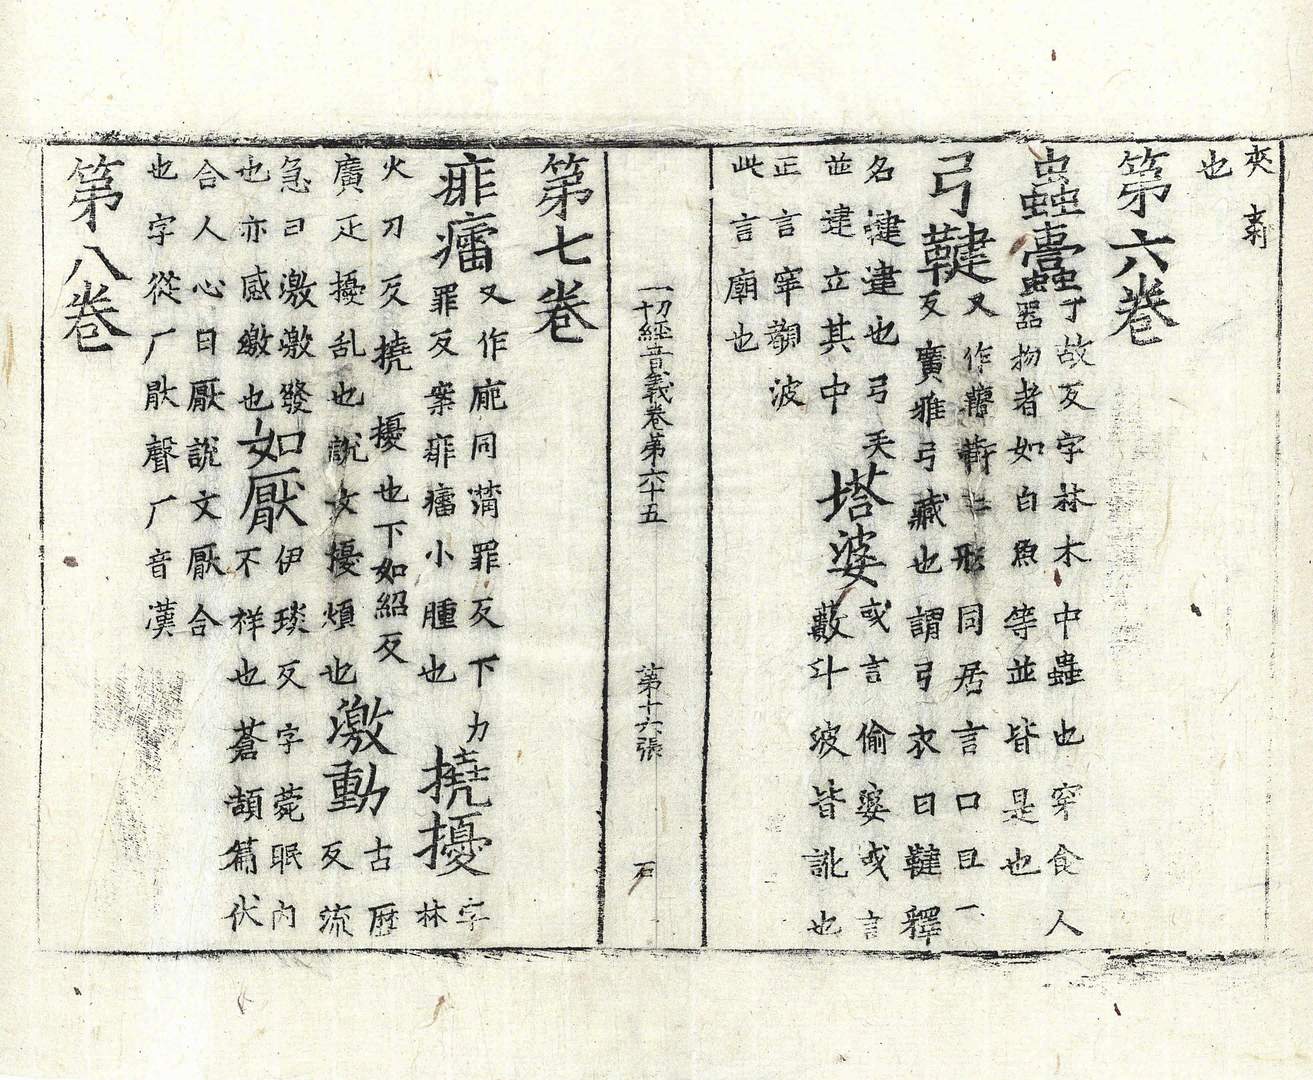 夾 剌
也
第六卷
蟲蠹 丁故反字林木中蟲也穿食人
器物者如白魚等並皆是也
弓鞬 又作鞬 二形同居言巨一
反廣雅弓藏也謂弓衣曰鞬釋
名鞬建也弓矢
並建立其中 塔婆 或言偷婆或言
藪斗波皆訛也
正言窣覩波
此言廟也
一切經音義卷第六十五 第十六張 石
第七卷
痱㿔 又作疿同蒲罪反下力
罪反案痱㿔小腫也 撓擾 字林
火刀反撓擾也下如紹反
廣疋擾乱也說文擾煩也 激動 古歷反流
急曰激激發
也亦感激也 如厭 伊琰反字菀眠內
不祥也蒼頡篇伏
合人心曰厭說文厭合
也字從厂猒聲厂音漢
第八卷